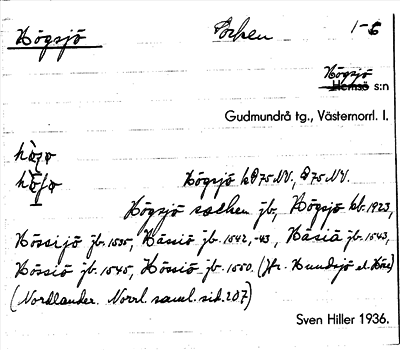 Högsjö Socken 1-6
Högsjö
Hemsö s:n
Gudmundrå tg., Västernorrl. l.
Högsjö k 75 NV, 75 NV.
Högsjö socken jb, Högsjö kb. 1923,
Hössijö jb. 1535, Hässiö jb. 1542,-43, Häsiä jb. 1543,
Hössiö jb. 1545, Hössiö jb. 1550. (Jfr. Hundsjö el.
(Nordlander. Norrl. saml. sid. 207)
Sven Hiller 1936.